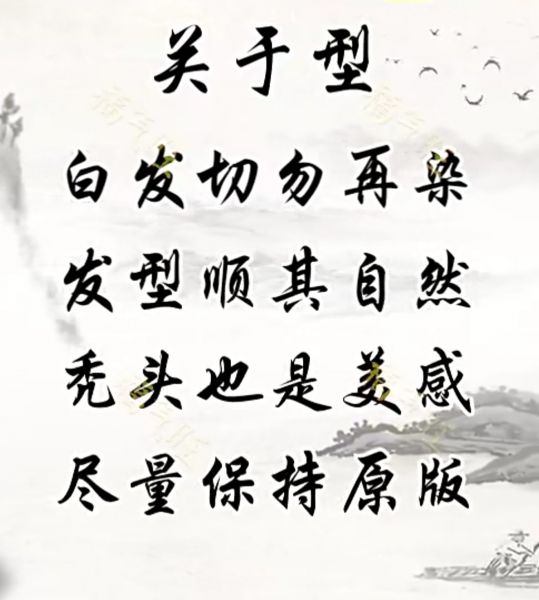 关于型
白发切勿再染
发型顺其自然
秃头也是美感
尽量保持原版